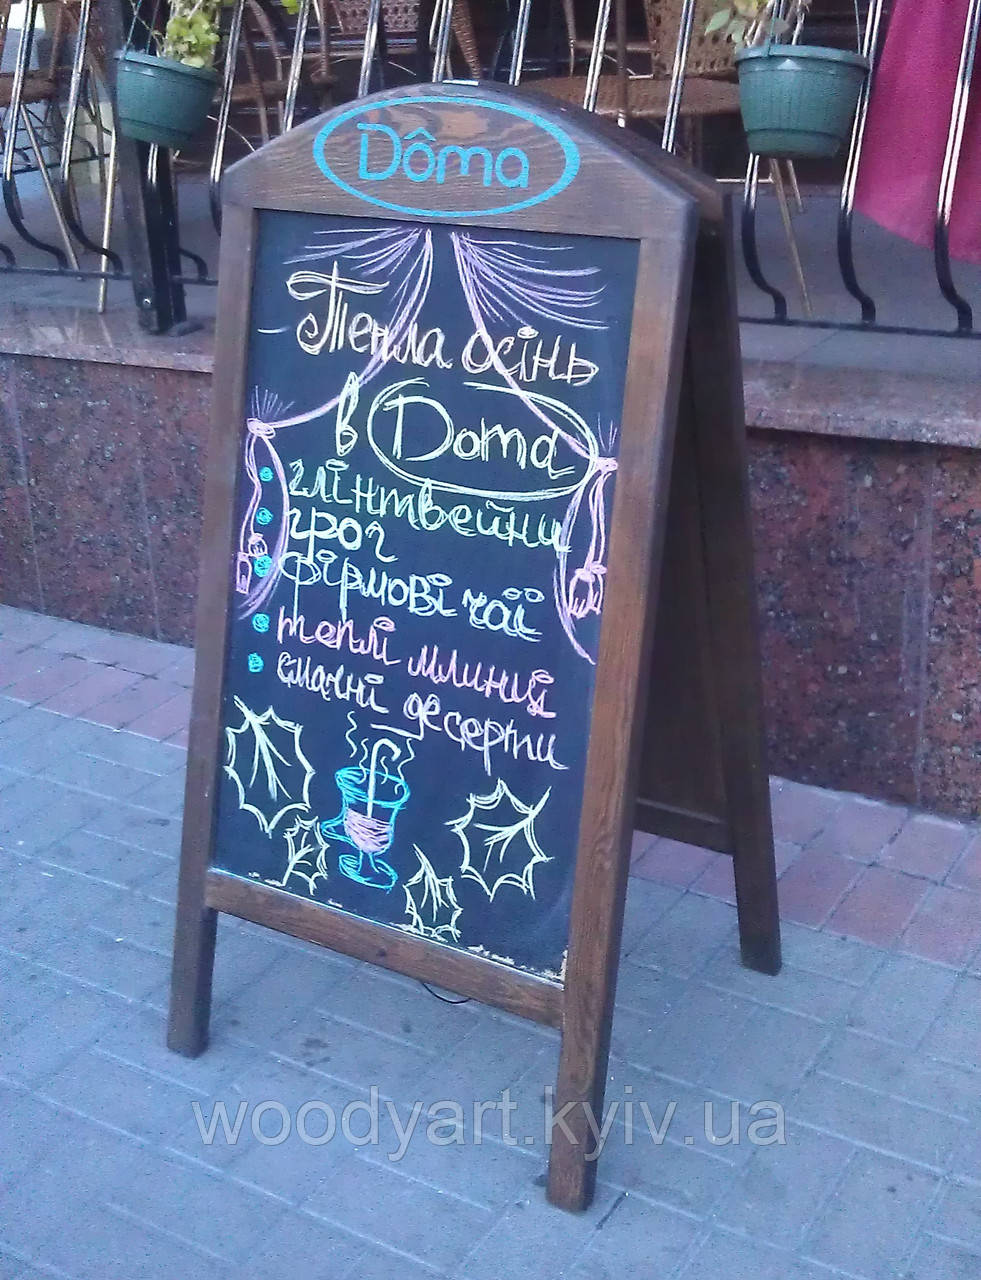 Dôma
Тепла осінь
в Doma
глінтвейни
грог
фірмові чаї
теплі млинці
смачні десерти
woodyart.kyiv.ua